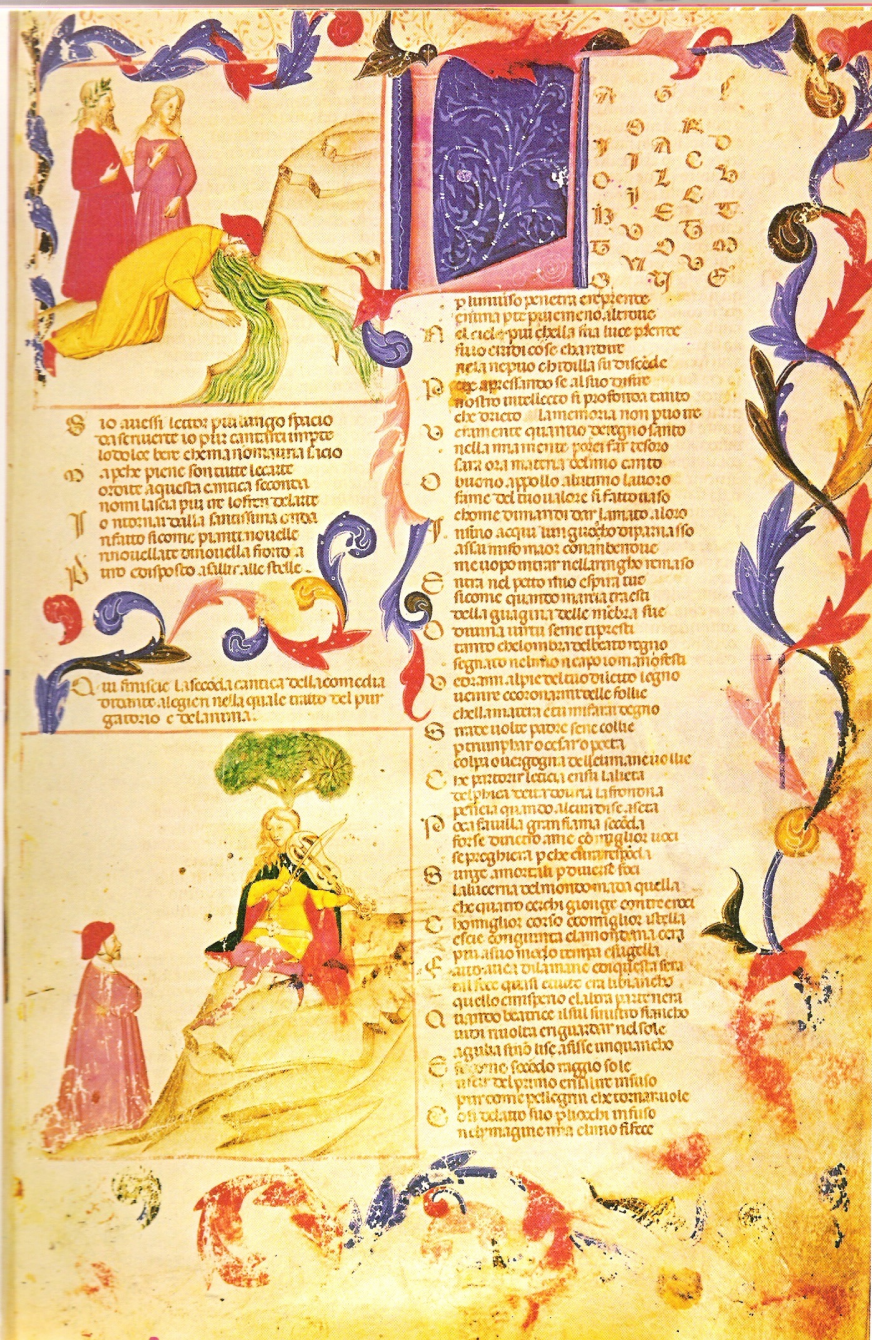 S io auessi lettor piu lungo spacio
da scriuere io pur canterei impte
lo dolce bere che mai non mauria sacio
M a pche piene son tutte le carte
ordite a questa cantica seconda
nomi lascia piu ire lo fren delarte
I o ritornai dalla santissima onda
rifatto sicome piante nouelle
rinouellate di nouella
P uro e disposto a salire alle stelle
Q ui finiscie la secoda cantica della comedia
di dante alegieri nella quale tratto del pur
gatorio e de lanima.
p luniuso penetra e risplende
in una pte piu e meno altroue
N el ciel piu che lla sua luce prende
fu io e uidi cose che ridire
ne sa ne puo chi di lassu discede
P che apressando se al suo disire
nostro intelletto si profonda tanto
che drieto la memoria non puo ire
V eramente quantio del regno santo
nella mia mente potei far tesoro
sara ora materia del mio canto
O buono appollo alultimo lauoro
fame del tuo ualore si fatto uaso
chome dimandi dar lamato aloro
I nsino a qui lun giogho di parnasso
assai mi fo ma or con ambendue
me uopo intrar nellaringho remaso
E ntra nel petto mio e spira tue
sicome quando marsia traesti
della guagina delle mebra sue
O diuina uirtu se mi ti presti
tanto che lombra del beato regno
segnata nel mio capo io manifesti
V edrami al pie del tuo diletto legno
uenire e coronarmi delle foglie
che lla matera e tu mi farai degno
S i rade uolte padre sene coglie
p triunphar o cesar o poeta
colpa o uergogna delle umane uoglie
C he partorir leticia in su la lieta
delphica deita douria la fronda
peneia quando alcun di se aseta
P oca fauilla gran fiama secoda
forse diretro a me co miglior uoci
se preghiera pche cirra risponda
S urge a mortali p diuerse foci
la lucerna del mondo ma da quella
che quatro cerchi giunge con tre croci
C ho miglior corso e co miglior stella
escie congiunta e la mondana cera
piu a suo modo tempa e sugella
F atto auea di la mane e di qua sera
tal foce quasi e tutto era la biancho
quello emisperio e laltra parte nera
Q uando beatrice in sul sinistro fiancho
uidi riuolta e riguardar nel sole
aguglia si no lise afisse unquancho
E si come secodo raggio sole
uscir del primo e risalire in suso
pur come pellegrin che tornar uole
C osi delatto suo p liocchi infuso
nel imagine mia el mio si fece